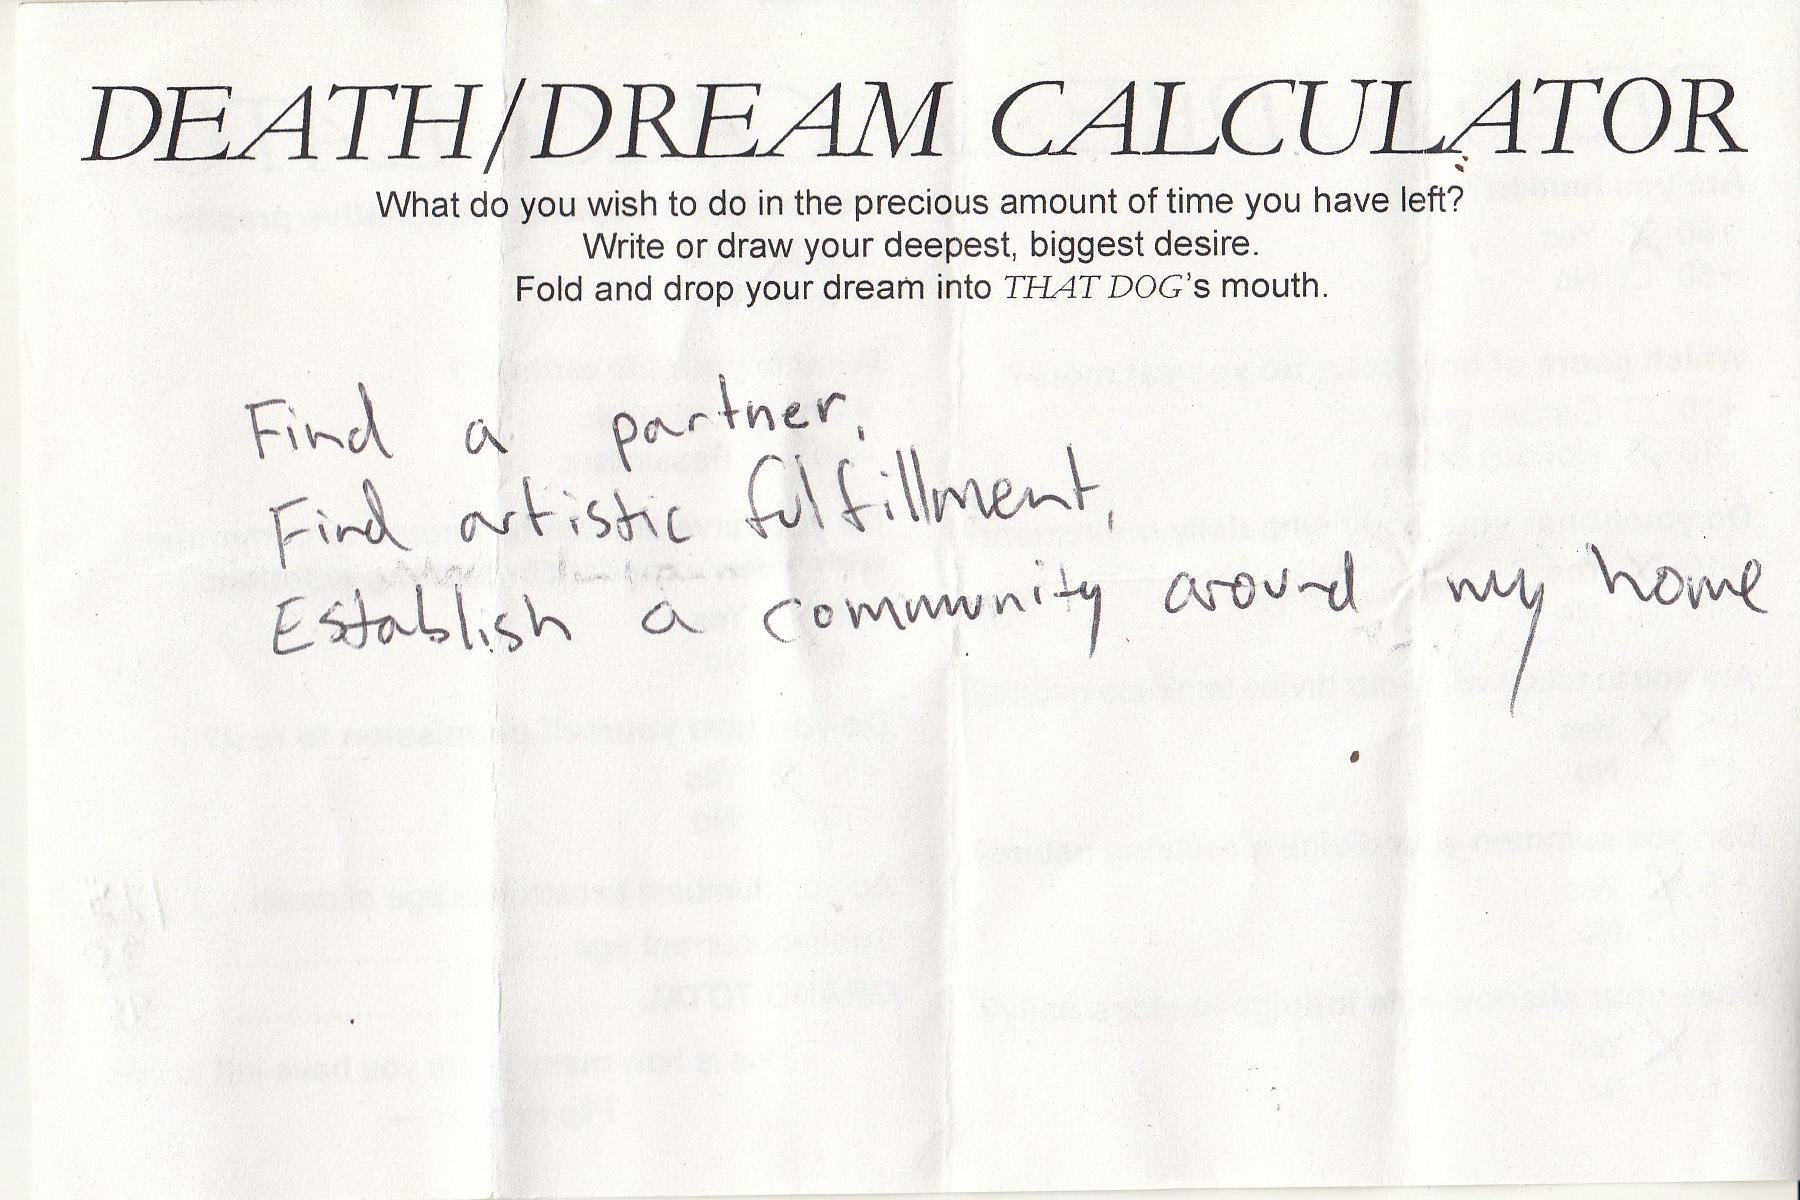 DEATH/DREAM CALCULATOR
What do you wish to do in the precious amount of time you have left?
Write or draw your deepest, biggest desire.
Fold and drop your dream into THAT DOG's mouth.
Find a partner,
Find artistic fulfillment,
Establish a community around my home